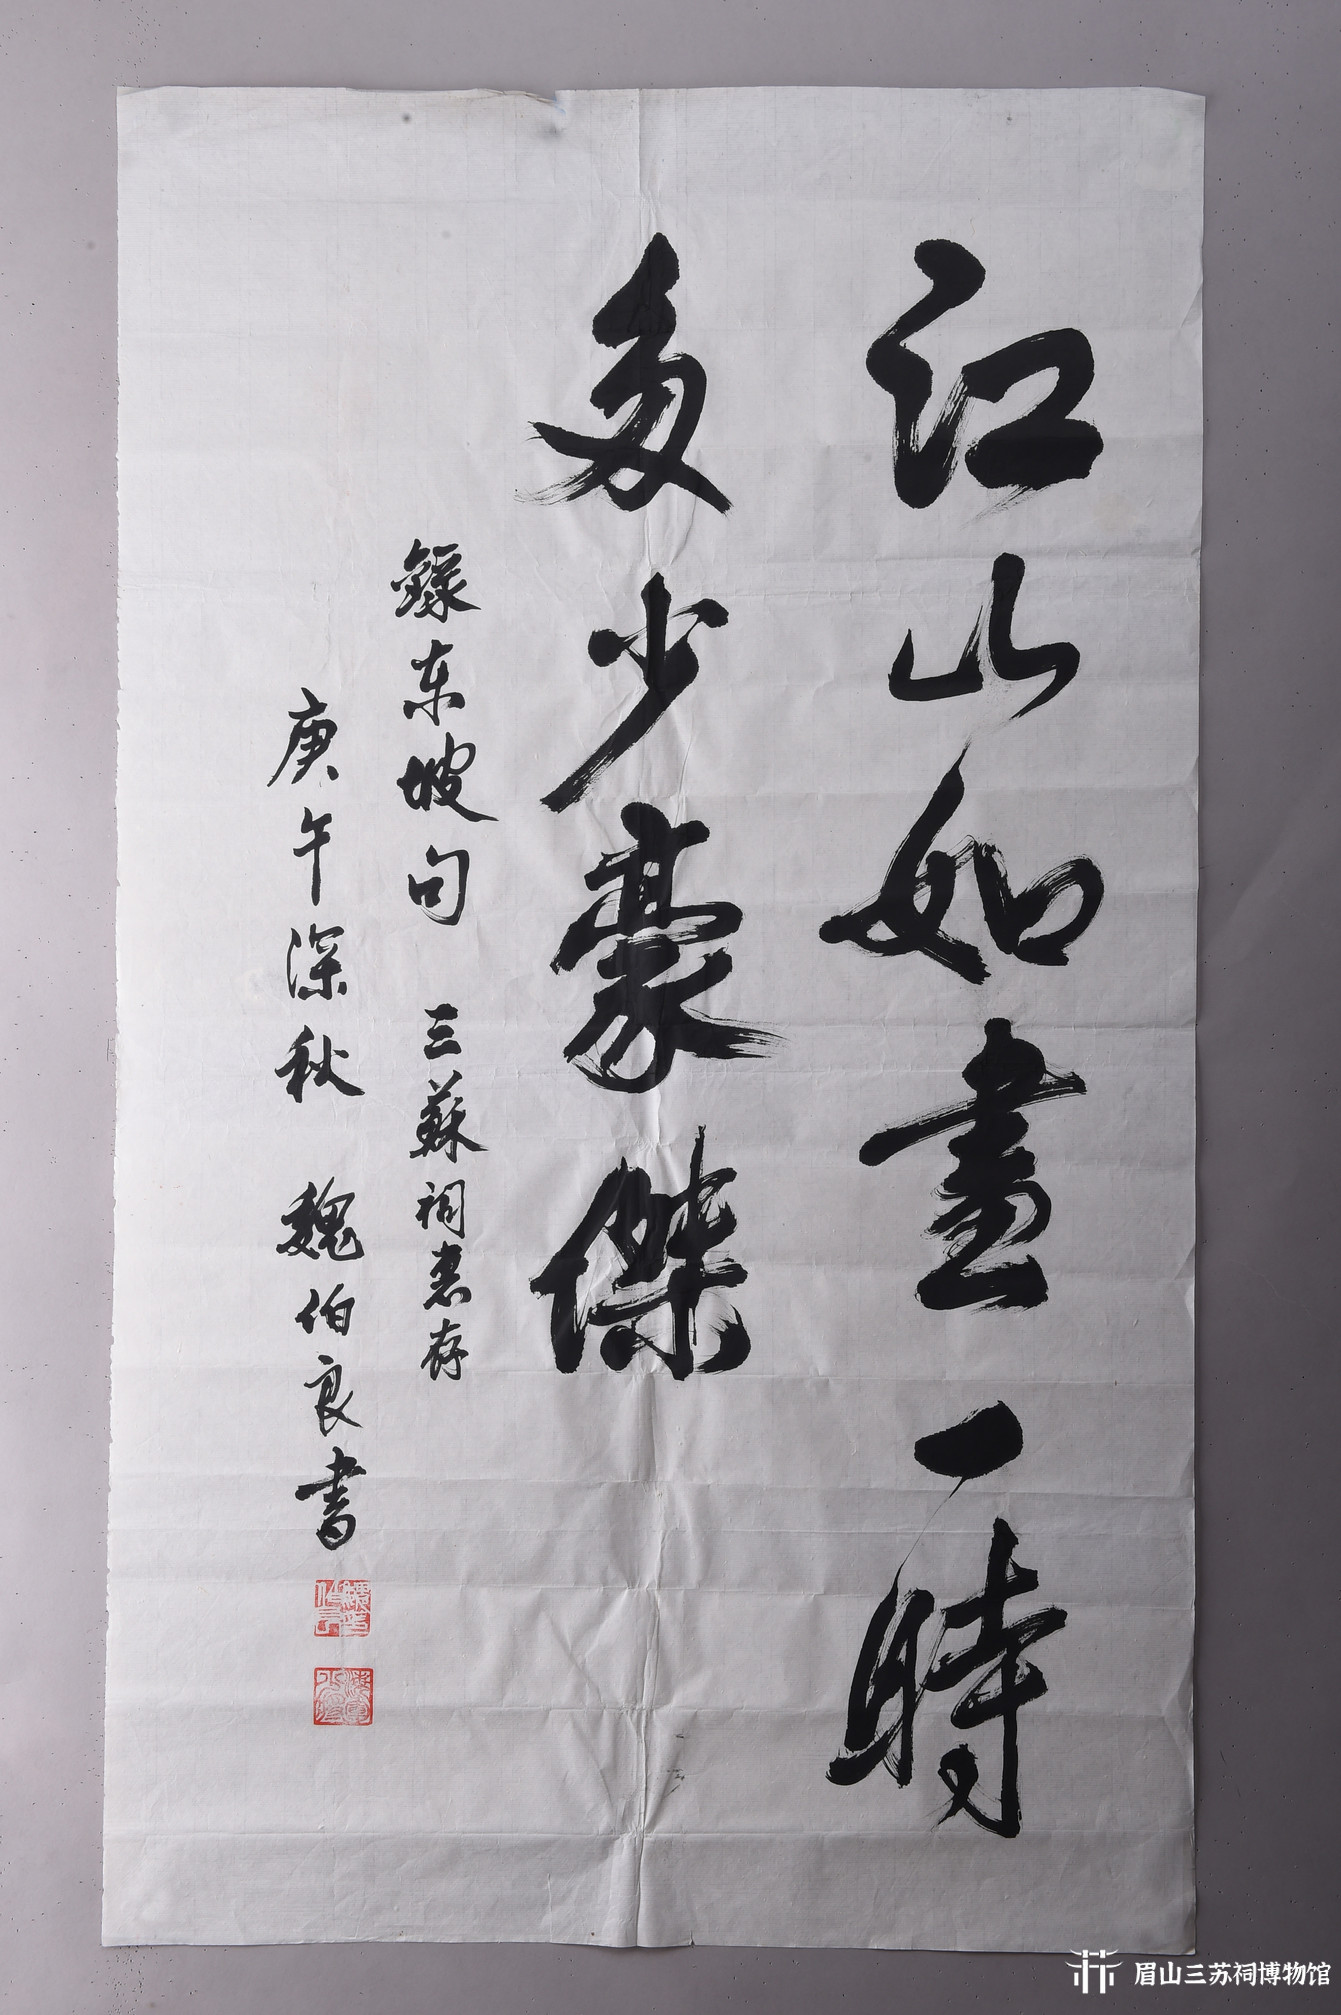 江山如畫一時
多少豪傑
錄东坡句 三蘇祠惠存
庚午深秋 魏伯良書
眉山三苏祠博物馆